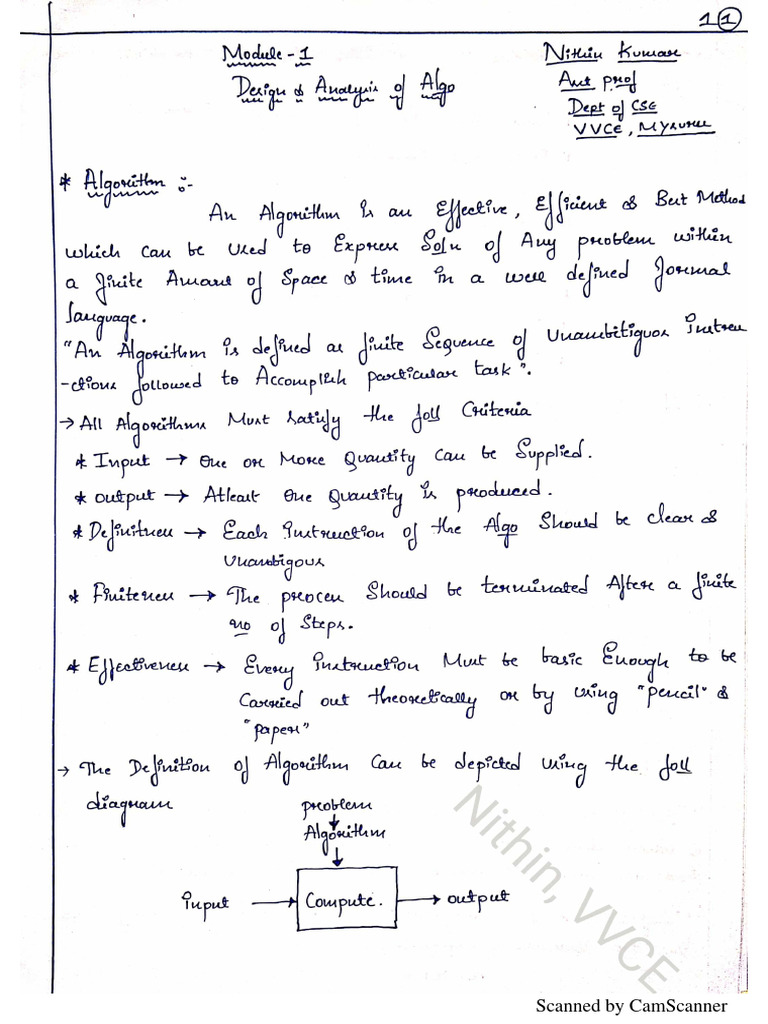 1 1
Module - 1
Design & Analysis of Algo
Nithin Kumar
Asst prof
Dept of CSE
VVCE, Mysuru
* Algorithm :-
An Algorithm is an Effective, Efficient & Best Method
which can be used to Express Soln of Any problem within
a finite Amount of Space & time in a well defined formal
language.
"An Algorithm is defined as finite Sequence of Unambitiguos instru
-ctions followed to Accomplish particular task".
→ All Algorithms Must satisfy the foll Criteria
* Input → One or More Quantity can be Supplied.
* output → Atleast One Quantity is produced.
* Definitness → Each instruction of the Algo Should be clear &
Unambigous
* Finiteness → The process Should be terminated After a finite
no of Steps.
* Effectiveness → Every instruction Must be basic Enough to be
Carried out theoretically or by using "pencil" &
"paper"
→ The Definition of Algorithm Can be depicted using the foll
diagram
problem
Algorithm
input → Compute. → output
Nithin, VVCE
Scanned by CamScanner